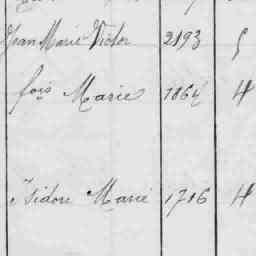 Jean Marie Victor 2193 5
fois Marie 1864 4
Isidore Marie 1716 4